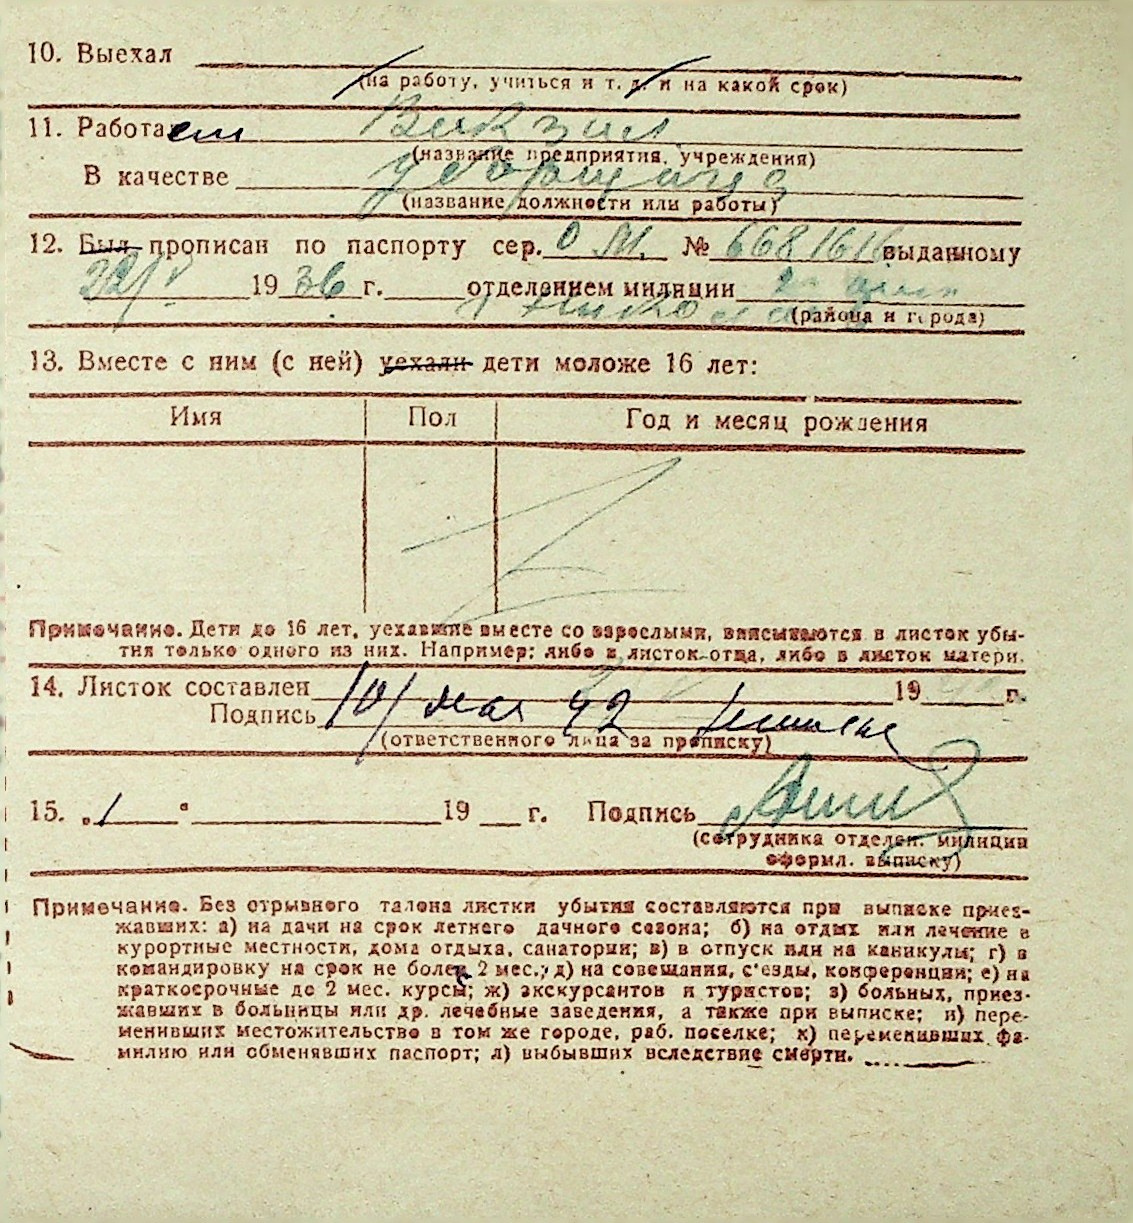 10. Выехал
(на работу, учиться и т. д. и на какой срок)
11. Работает Вокзал
(название предприятия, учреждения)
В качестве уборщица
(название должности или работы)
12. Был прописан по паспорту сер. № 6681616 выданному
22/V 1936 г. отделением милиции
(района и города)
13. Вместе с ним (с ней) уехали дети моложе 16 лет:
Имя Пол Год и месяц рождения
Примечание. Дети до 16 лет, уехавшие вместе со взрослыми, вписываются в листок убы-
тия только одного из них. Например: либо в листок отца, либо в листок матери.
14. Листок составлен 19 г.
Подпись 10/ мая 42
(ответственного лица за прописку)
15. „1" 19 г. Подпись
(сотрудника отделен. милиции
оформл. выписку)
Примечание. Без отрывного талона листки убытия составляются при выписке приез-
жавших: а) на дачи на срок летнего дачного сезона; б) на отдых или лечение в
курортные местности, дома отдыха, санатории; в) в отпуск или на каникулы; г) в
командировку на срок не более 2 мес.; д) на совещания, с'езды, конференции; е) на
краткосрочные до 2 мес. курсы; ж) экскурсантов и туристов; з) больных, приез-
жавших в больницы или др. лечебные заведения, а также при выписке; и) пере-
менивших местожительство в том же городе, раб. поселке; к) переменивших фа-
милию или обменявших паспорт; л) выбывших вследствие смерти.